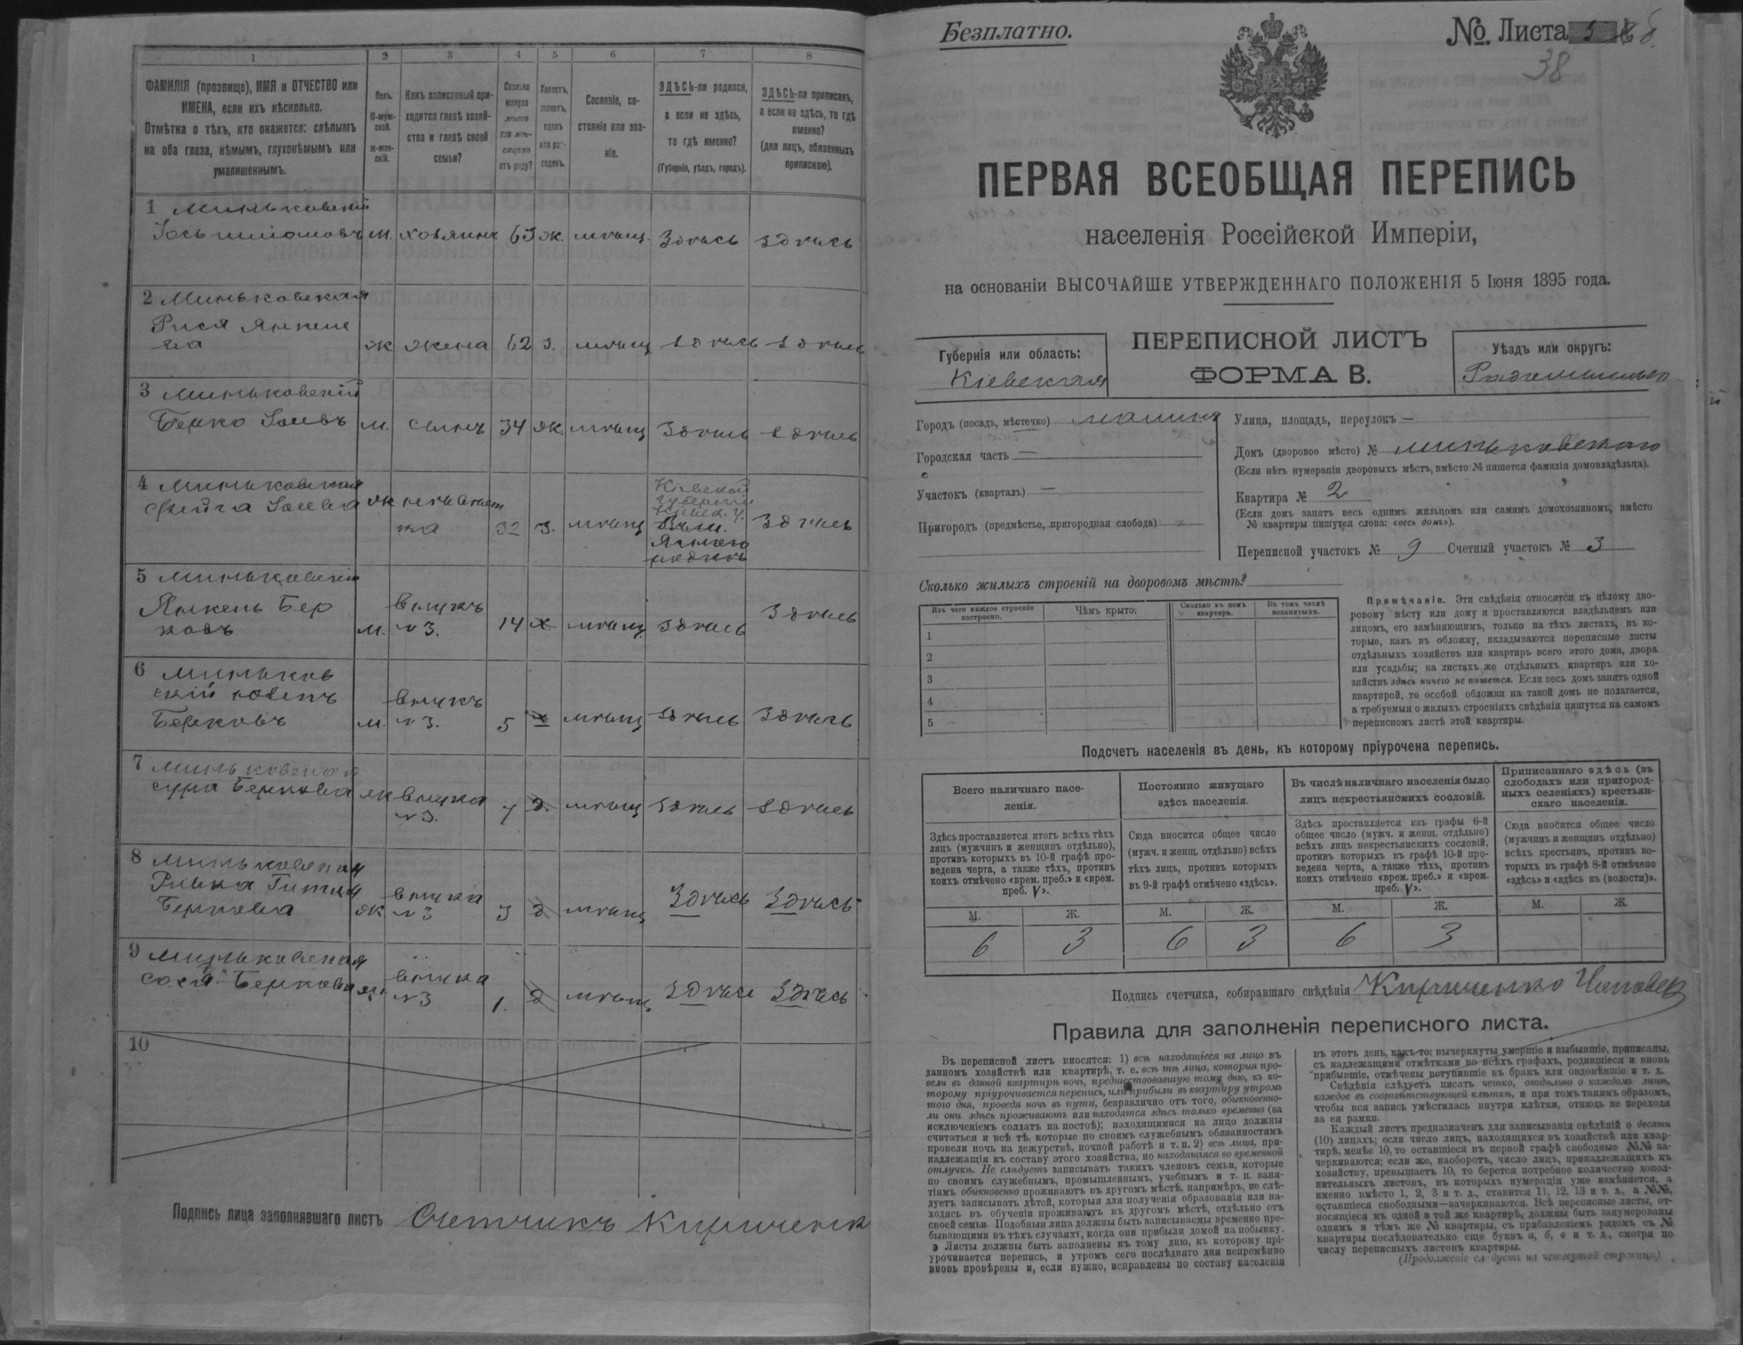 1 2 3 4 5 6 7 8
ФАМИЛІЯ (прозвище), ИМЯ и ОТЧЕСТВО или
ИМЕНА, если ихъ нѣсколько.
Отмѣтка о тѣхъ, кто окажется: слѣпымъ
на оба глаза, нѣмымъ, глухонѣмымъ или
умалишеннымъ.
Полъ.
М-муж-
ской.
Ж-жен-
скій.
Какъ записанный при-
ходится главѣ хозяй-
ства и главѣ своей
семьи?
Сколько
минуло
лѣтъ
или мѣ-
сяцевъ
отъ роду?
Холостъ,
женатъ,
вдовъ
или раз-
веденъ.
Сословіе, со-
стояніе или зва-
ніе.
ЗДѢСЬ-ли родился,
а если не здѣсь,
то гдѣ именно?
(Губернія, уѣздъ, городъ).
ЗДѢСЬ-ли приписанъ,
а если не здѣсь, то гдѣ
именно?
(для лицъ, обязанныхъ
припискою).
1 Миньковскій
м. хозяинъ 63 ж. мѣщ. Здѣсь здѣсь
2 Миньковская
Рися Янкеле
ва ж жена 62 з. мѣщ здѣсь здѣсь
3 Миньковскій
Берко Іосевъ м. сынъ 34 ж. мѣщ Здѣсь здѣсь
4 Миньковская
Фейга Іосева ж невѣст
ка 32 з. мѣщ Здѣсь
Кіевской
губерніи
5 Миньковскій
Янкель Бер
ковъ м. внукъ
№3. 14 х. мѣщ здѣсь Здѣсь
6 Миньков
скій
Берковъ м. внукъ
№3. 5 х мѣщ здѣсь Здѣсь
7 Миньковская
Сура Беркова ж внука
№3. 7 д. мѣщ здѣсь здѣсь
8 Миньковская
Ривка Гитля
Беркова ж внука
№3 3 д мѣщ Здѣсь Здѣсь
9 Миньковская
Сося Беркова ж. внука
№3 1. д мѣщ. Здѣсь Здѣсь
10
Подпись лица заполнявшаго листъ Счетчикъ Кириченк
Безплатно.
№. Листа
38
ПЕРВАЯ ВСЕОБЩАЯ ПЕРЕПИСЬ
населенія Россійской Имперіи,
на основаніи ВЫСОЧАЙШЕ УТВЕРЖДЕННАГО ПОЛОЖЕНІЯ 5 Іюня 1895 года.
Губернія или область:
Кіевская
ПЕРЕПИСНОЙ ЛИСТЪ
ФОРМА В.
Уѣздъ или округъ:
Городъ (посадъ, мѣстечко) малинъ
Городская часть —
Участокъ (кварталъ) —
Пригородъ (предмѣстье, пригородная слобода)
Улица, площадь, переулокъ —
Домъ (дворовое мѣсто) № миньковскаго
(Если нѣтъ нумераціи дворовыхъ мѣстъ, вмѣсто № пишется фамилія домовладѣльца).
Квартира № 2
(Если домъ занятъ весь однимъ жильцомъ или самимъ домохозяиномъ, вмѣсто
№ квартиры пишутся слова: «весь домъ»).
Переписной участокъ № 9 Счетный участокъ № 3
Сколько жилыхъ строеній на дворовомъ мѣстѣ?
Изъ чего каждое строеніе
построено.
Чѣмъ крыто.
Сколько въ немъ
квартиръ.
Въ томъ числѣ
незанятыхъ.
1
2
3
4
5
Примѣчаніе. Эти свѣдѣнія относятся къ цѣлому дво-
ровому мѣсту или дому и проставляются владѣльцемъ или
лицомъ, его замѣняющимъ, только на тѣхъ листахъ, въ ко-
торые, какъ въ обложку, вкладываются переписные листы
отдѣльныхъ хозяйствъ или квартиръ всего этого дома, двора
или усадьбы; на листахъ же отдѣльныхъ квартиръ или хо-
зяйствъ здѣсь ничего не пишется. Если весь домъ занятъ одной
квартирой, то особой обложки на такой домъ не полагается,
а требуемыя о жилыхъ строеніяхъ свѣдѣнія пишутся на самомъ
переписномъ листѣ этой квартиры.
Подсчетъ населенія въ день, къ которому пріурочена перепись.
Всего наличнаго насе-
ленія.
Постоянно живущаго
здѣсь населенія.
Въ числѣ наличнаго населенія было
лицъ некрестьянскихъ сословій.
Приписаннаго здѣсь (въ
слободахъ или пригород-
ныхъ селеніяхъ) крестьян-
скаго населенія.
Здѣсь проставляется итогъ всѣхъ тѣхъ
лицъ (мужчинъ и женщинъ отдѣльно),
противъ которыхъ въ 10-й графѣ про-
ведена черта, а также тѣхъ, противъ
коихъ отмѣчено «врем. преб.» и «врем.
преб. V».
Сюда вносится общее число
(мужч. и женщ. отдѣльно) всѣхъ
тѣхъ лицъ, противъ которыхъ
въ 9-й графѣ отмѣчено «здѣсь».
Здѣсь проставляется изъ графы 6-й
общее число (мужч. и женщ. отдѣльно)
всѣхъ лицъ некрестьянскихъ сословій,
противъ которыхъ въ графѣ 10-й про-
ведена черта, а также тѣхъ, противъ
коихъ отмѣчено «врем. преб.» и «врем.
преб. V».
Сюда вносится общее число
(мужчинъ и женщинъ отдѣльно)
всѣхъ крестьянъ, противъ ко-
торыхъ въ графѣ 8-й отмѣчено
«здѣсь» и «здѣсь къ (волости)».
М. Ж. М. Ж. М. Ж. М. Ж.
6 3 6 3 6 3
Подпись счетчика, собиравшаго свѣдѣнія Кириченко
Правила для заполненія переписного листа.
Въ переписной листъ вносятся: 1) всѣ находящіеся на лицо въ
данномъ хозяйствѣ или квартирѣ, т. е. всѣ тѣ лица, которыя про-
вели въ данной квартирѣ ночь, предшествовавшую тому дню, къ ко-
торому пріурочивается перепись, или прибыли въ квартиру утромъ
того дня, проведя ночь въ пути, безразлично отъ того, обыкновенно-
ли они здѣсь проживаютъ или находятся здѣсь только временно (за
исключеніемъ солдатъ на постоѣ); находящимися на лицо должны
считаться и всѣ тѣ, которые по своимъ служебнымъ обязанностямъ
провели ночь на дежурствѣ, ночной работѣ и т. п. 2) всѣ лица, при-
надлежащія къ составу этого хозяйства, но находящіяся во временной
отлучкѣ. Не слѣдуетъ записывать такихъ членовъ семьи, которые
по своимъ служебнымъ, промышленнымъ, учебнымъ и т. п. заня-
тіямъ обыкновенно проживаютъ въ другомъ мѣстѣ, напримѣръ, не слѣ-
дуетъ записывать дѣтей, которыя для полученія образованія или на-
ходясь въ обученіи проживаютъ въ другомъ мѣстѣ, отдѣльно отъ
своей семьи. Подобныя лица должны быть записываемы временно пре-
бывающими въ тѣхъ случаяхъ, когда они прибыли домой на побывку.
Листы должны быть заполнены къ тому дню, къ которому прі-
урочивается перепись, и утромъ сего послѣдняго дня непремѣнно
вновь провѣрены и, если нужно, исправлены по составу населенія
въ этотъ день, какъ-то: вычеркнуты умершіе и выбывшіе, приписаны,
съ надлежащими отмѣтками во всѣхъ графахъ, родившіеся и вновь
прибывшіе, отмѣчены вступившіе въ бракъ или овдовѣвшіе и т. д.
Свѣдѣнія слѣдуетъ писать четко, отдѣльно о каждомъ лицѣ,
каждое въ соотвѣтствующей клѣткѣ, и при томъ такимъ образомъ,
чтобы вся запись умѣстилась внутри клѣтки, отнюдь не переходя
за ея рамки.
Каждый листъ предназначенъ для записыванія свѣдѣній о десяти
(10) лицахъ; если число лицъ, находящихся въ хозяйствѣ или квар-
тирѣ, менѣе 10, то оставшіеся въ первой графѣ свободные №№ за-
черкиваются; если же, наоборотъ, число лицъ, принадлежащихъ къ
хозяйству, превышаетъ 10, то берется потребное количество допол-
нительныхъ листовъ, въ которыхъ нумерація уже измѣняется, а
именно вмѣсто 1, 2, 3 и т. д., ставится 11, 12, 13 и т. д., а №№,
оставшіеся свободными—зачеркиваются. Всѣ переписные листы, от-
носящіеся къ одной и той же квартирѣ, должны быть занумерованы
однимъ и тѣмъ же № квартиры, съ прибавленіемъ рядомъ съ №
квартиры послѣдовательно еще буквъ а, б, в и т. д., смотря по
числу переписныхъ листовъ квартиры.
(Продолженіе слѣдуетъ на четвертой страницѣ)